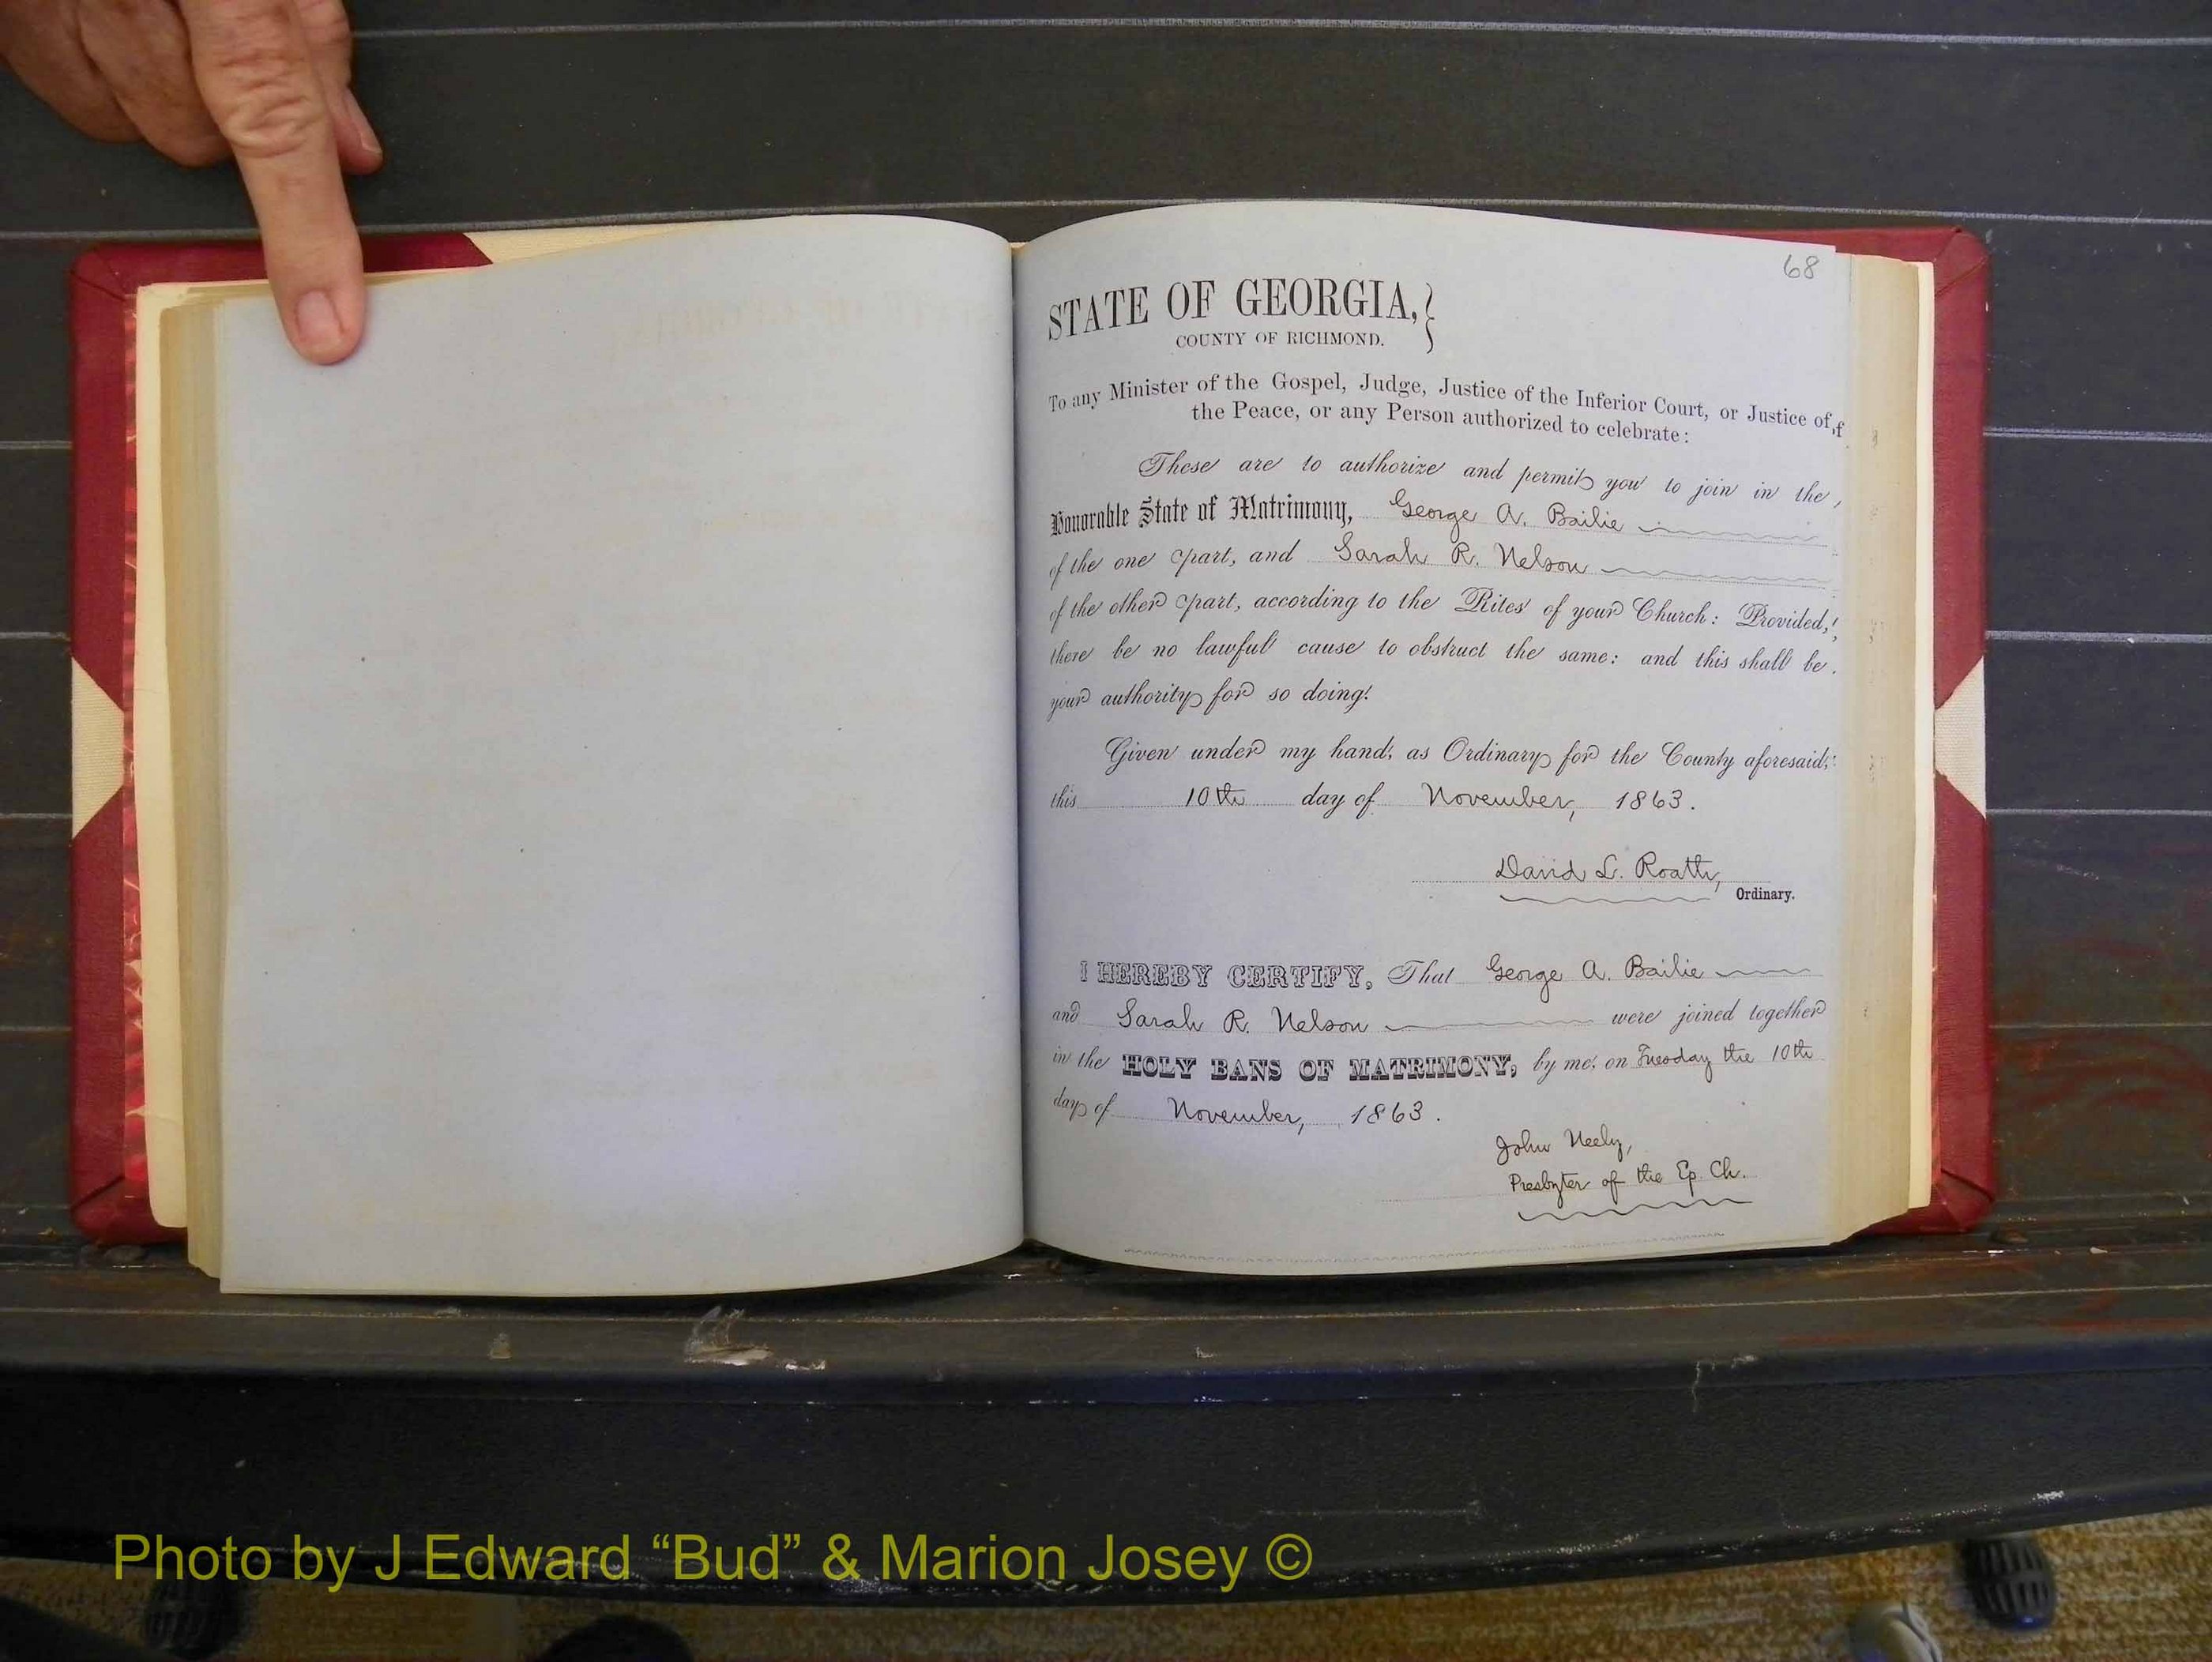 68
STATE OF GEORGIA,
COUNTY OF RICHMOND.
To any Minister of the Gospel, Judge, Justice of the Inferior Court, or Justice of
the Peace, or any Person authorized to celebrate:
These are to authorize and permit you to join in the
Honorable State of Matrimony, George A. Bailie
of the one part, and Sarah R. Nelson
of the other part, according to the Rites of your Church: Provided,
there be no lawful cause to obstruct the same: and this shall be
your authority for so doing.
Given under my hand, as Ordinary for the County aforesaid,
this 10th day of November, 1863.
David L. Roath,
Ordinary.
I HEREBY CERTIFY, That George A. Bailie
and Sarah R. Nelson were joined together
in the HOLY BANS OF MATRIMONY, by me, on Tuesday the 10th
day of November, 1863.
John Neely,
Presbyter of the Ep. Ch.
Photo by J Edward “Bud” & Marion Josey ©